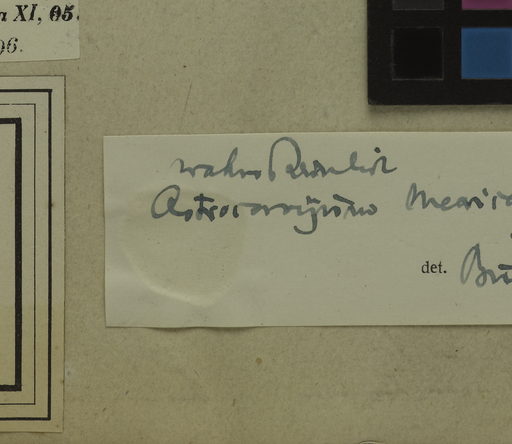 a XI, 05.
96.
wahrscheinlich
Astrocaryum Mexica
det. Bu